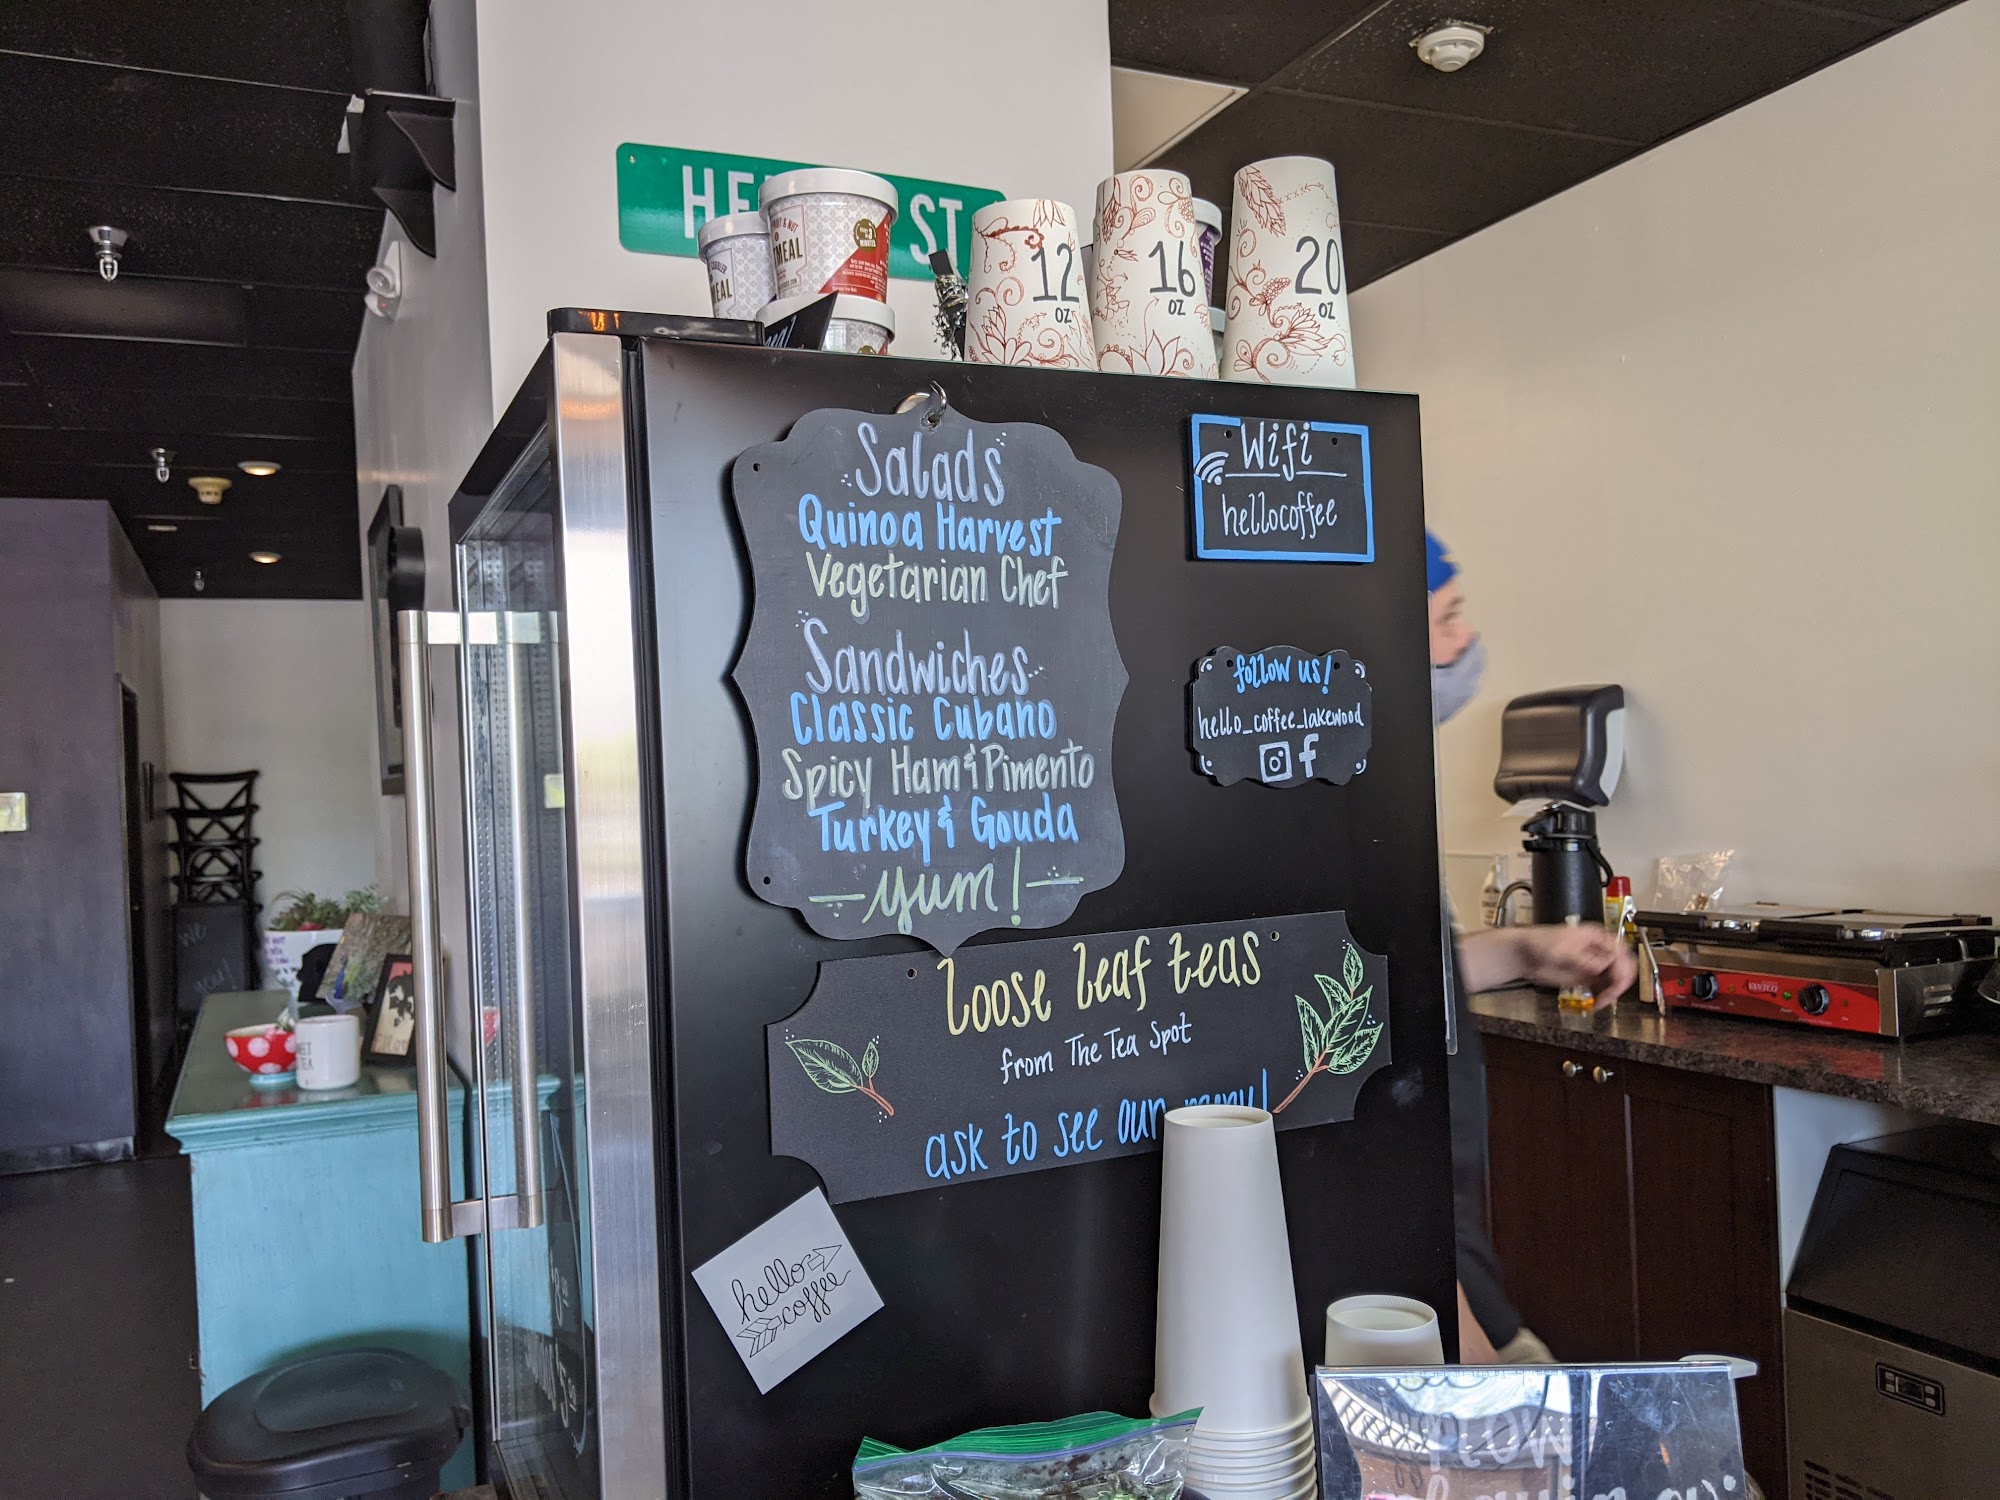 ST
MEAL
MEAL
12
OZ
16
OZ
20
OZ
Salads
Quinoa Harvest
Vegetarian Chef
Sandwiches
Classic Cubano
Spicy Ham & Pimento
Turkey & Gouda
yum!
Wifi
hellocoffee
follow us!
hello_coffee_lakewood
Loose Leaf teas
from The Tea Spot
ask to see our menu!
hello
coffee